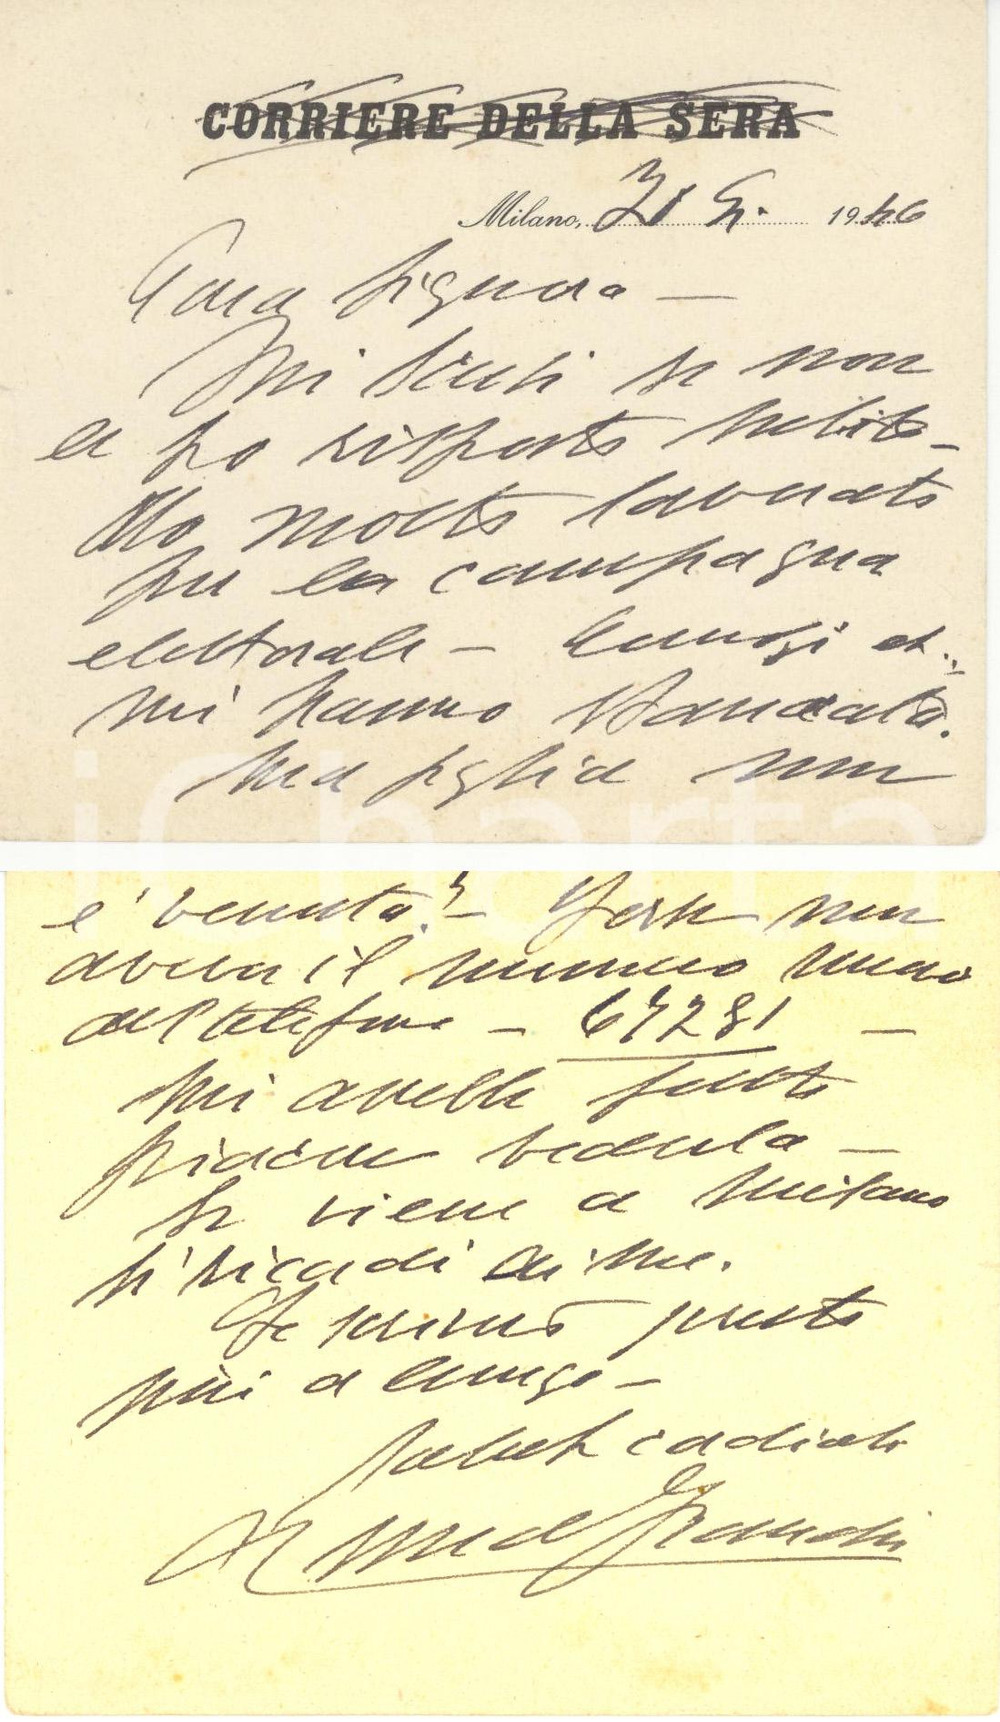 CORRIERE DELLA SERA
Milano, 31 G. 1946
Cara Signora —
Mi scusi se non
le ho risposto subito —
Ho molto lavorato
per la campagna
elettorale —
mi hanno stancata.
Sua figlia non
è venuta? — Forse non
aveva il numero nuovo
del telefono — 67281 —
Mi avrebbe fatto
piacere vederla —
Se viene a Milano
si ricordi di me.
Le scriverò presto
più a lungo —
Saluti cordiali
iCharta